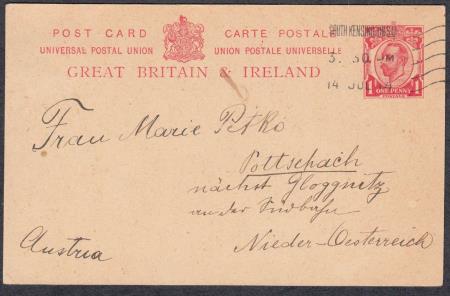 POST CARD CARTE POSTALE
UNIVERSAL POSTAL UNION UNION POSTALE UNIVERSELLE
GREAT BRITAIN & IRELAND
SOUTH KENSINGTON
3. 30 PM
14 JU
1 ONE PENNY 1
Frau Marie Petko
Pottschach
nächst Gloggnitz
an der Südbahn
Austria
Nieder-Oesterreich